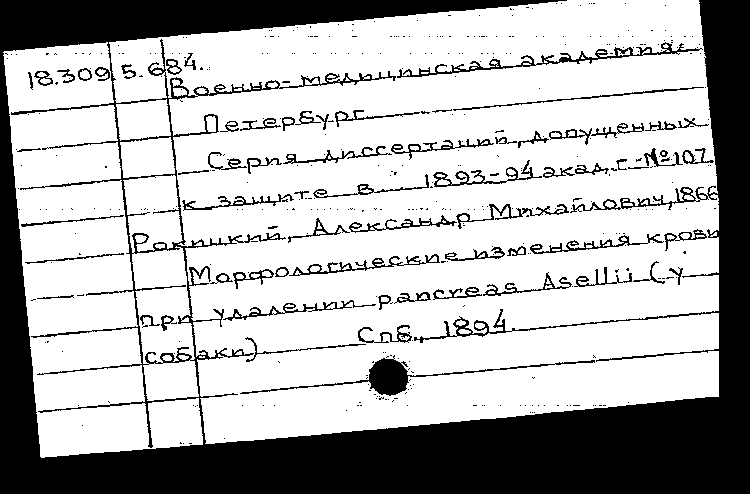 18.309.5.684.
Военно-медицинская академия.
Петербург
Серия диссертаций, допущенных
к защите в 1893-94 акад. г. №107.
Ракицкий, Александр Михайлович, 1866
Морфологические изменения крови
при удалении pancreas Asellii (у
собаки). Спб., 1894.